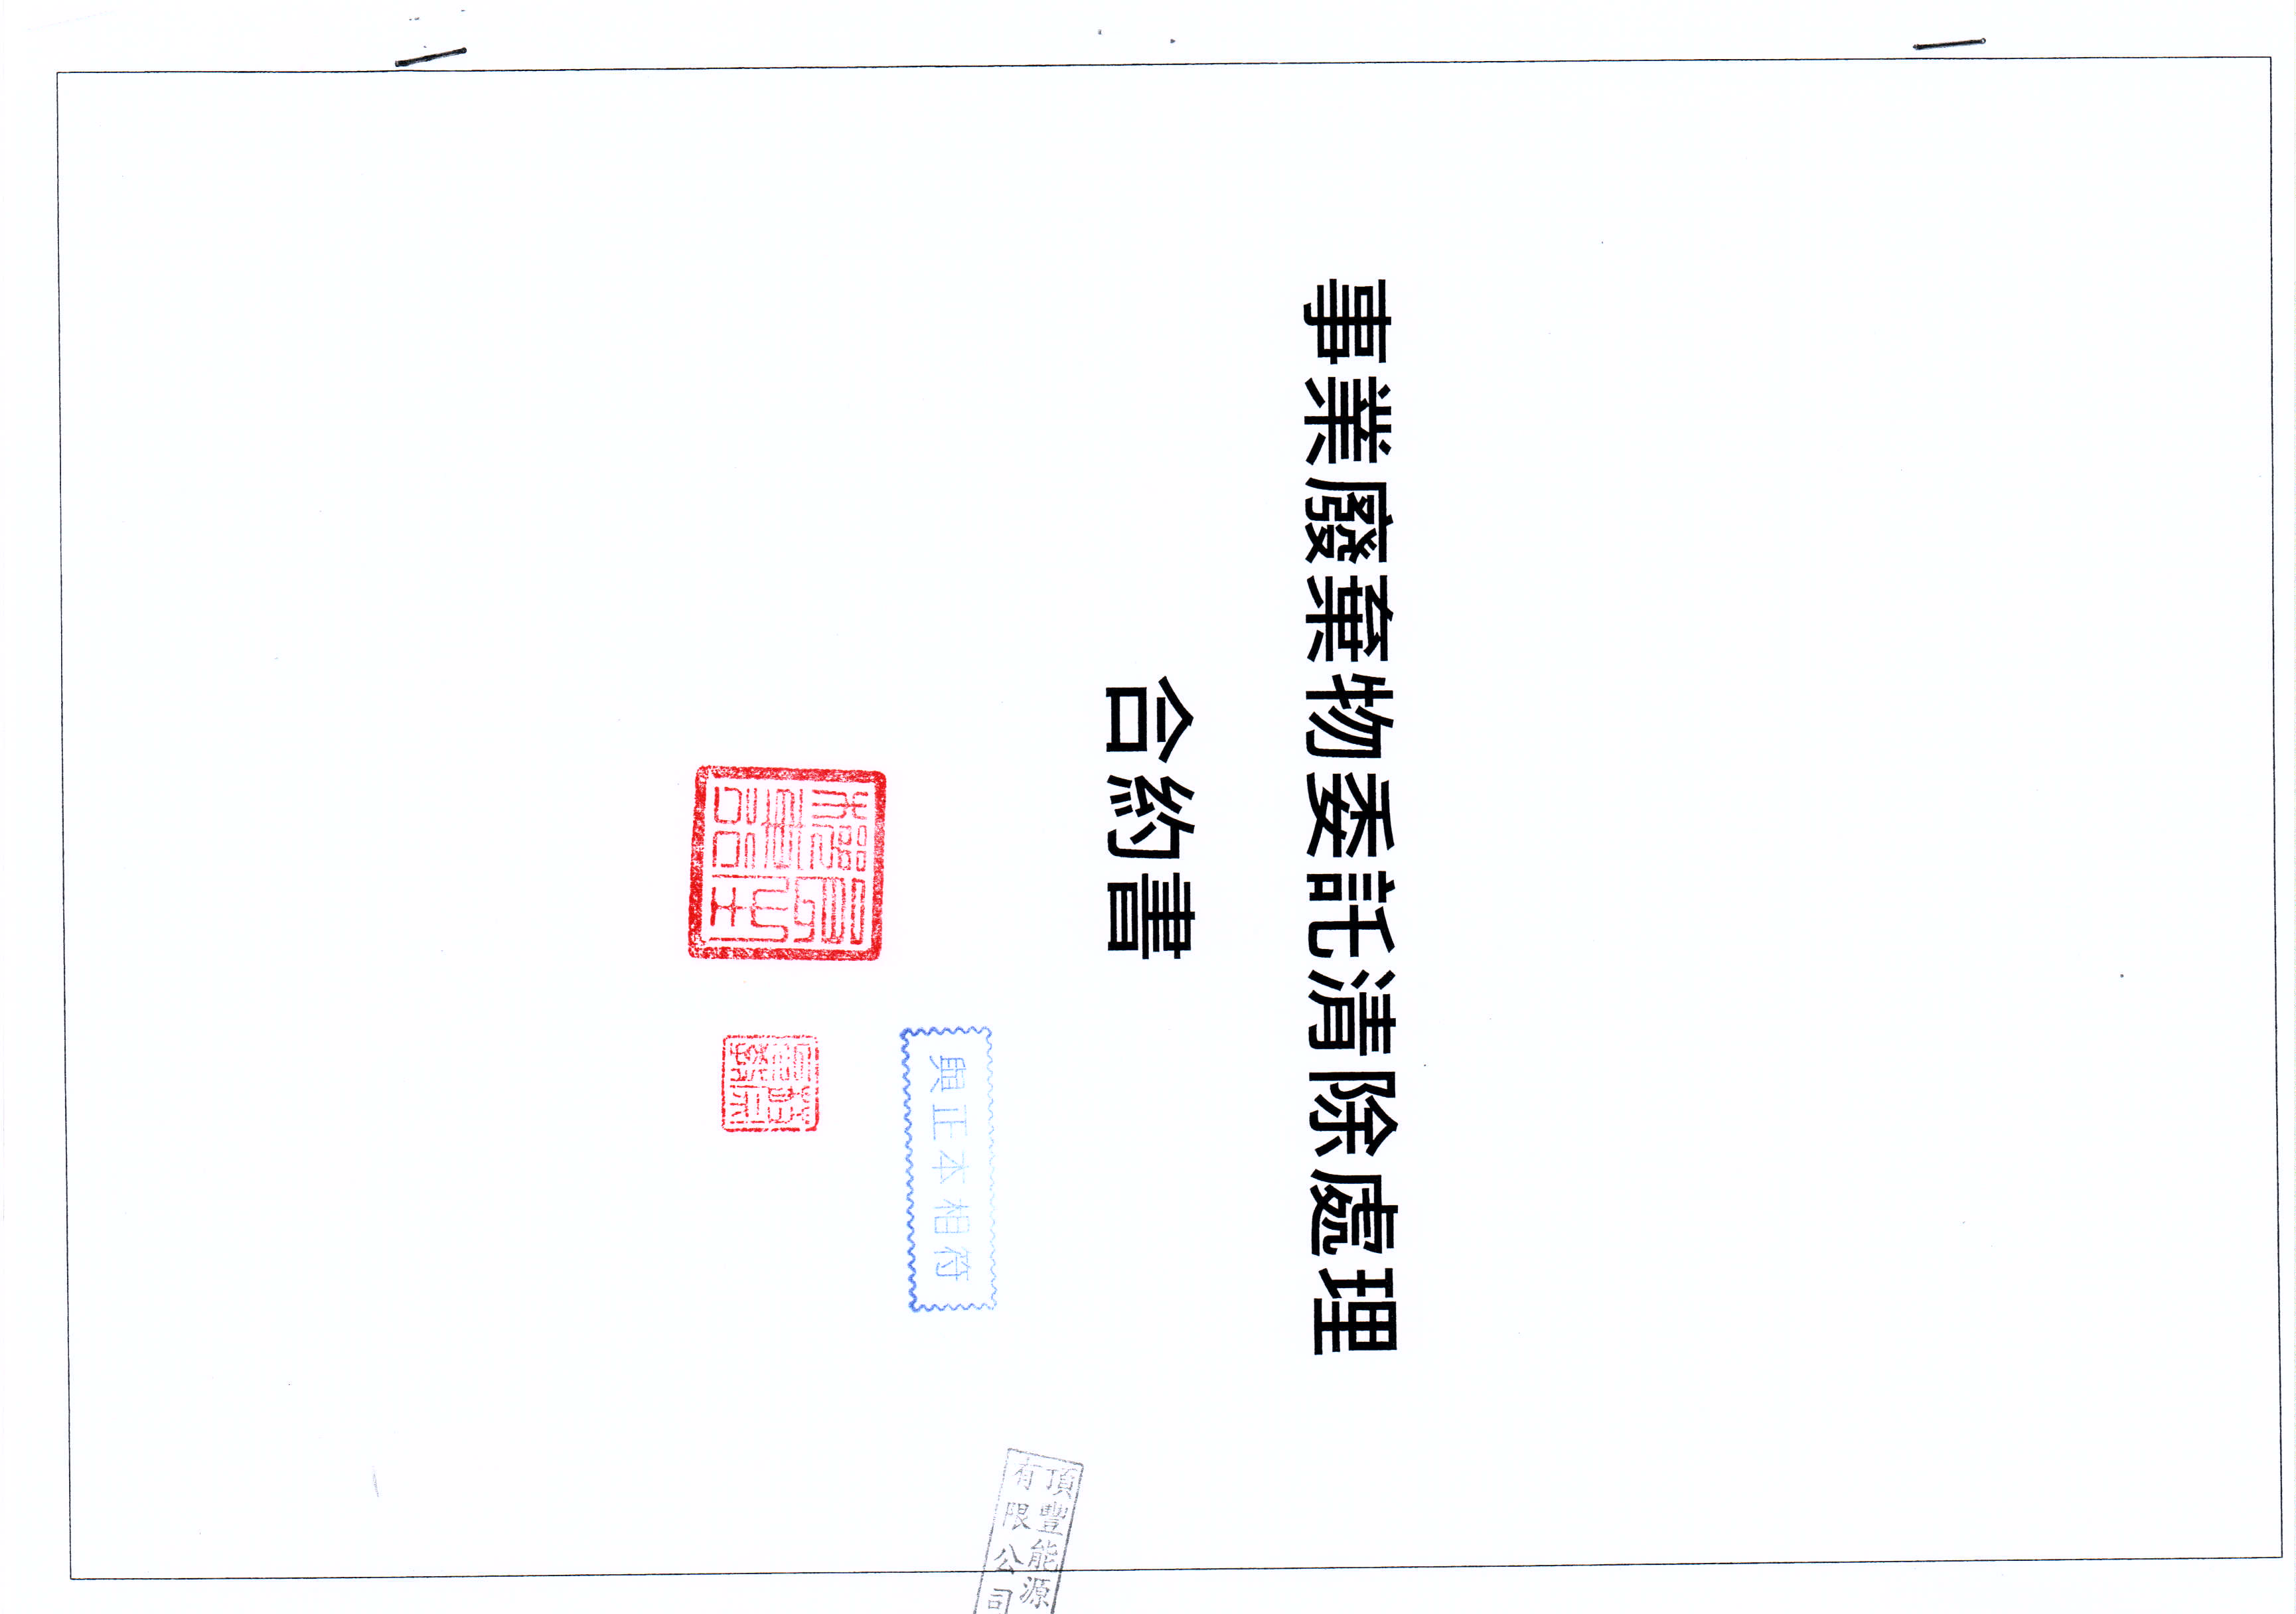 事業廢棄物委託清除處理
合約書
與正本相符
頂豐能源
有限公司